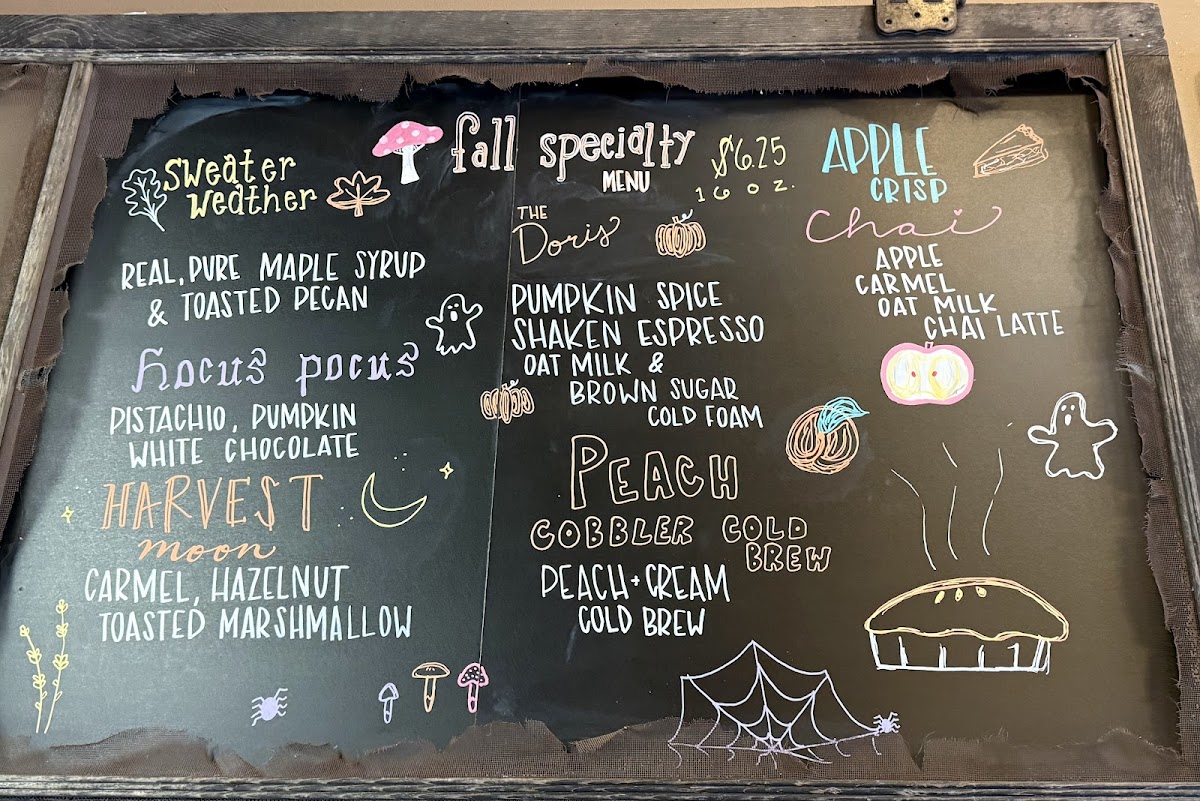 fall specialty
MENU
$6.25
16 oz.
Sweater
Weather
REAL, PURE MAPLE SYRUP
& TOASTED PECAN
hocus pocus
PISTACHIO, PUMPKIN
WHITE CHOCOLATE
HARVEST
moon
CARMEL, HAZELNUT
TOASTED MARSHMALLOW
THE
Doris
PUMPKIN SPICE
SHAKEN ESPRESSO
OAT MILK &
BROWN SUGAR
COLD FOAM
PEACH
COBBLER COLD
BREW
PEACH + CREAM
COLD BREW
APPLE
CRISP
Chai
APPLE
CARMEL
OAT MILK
CHAI LATTE